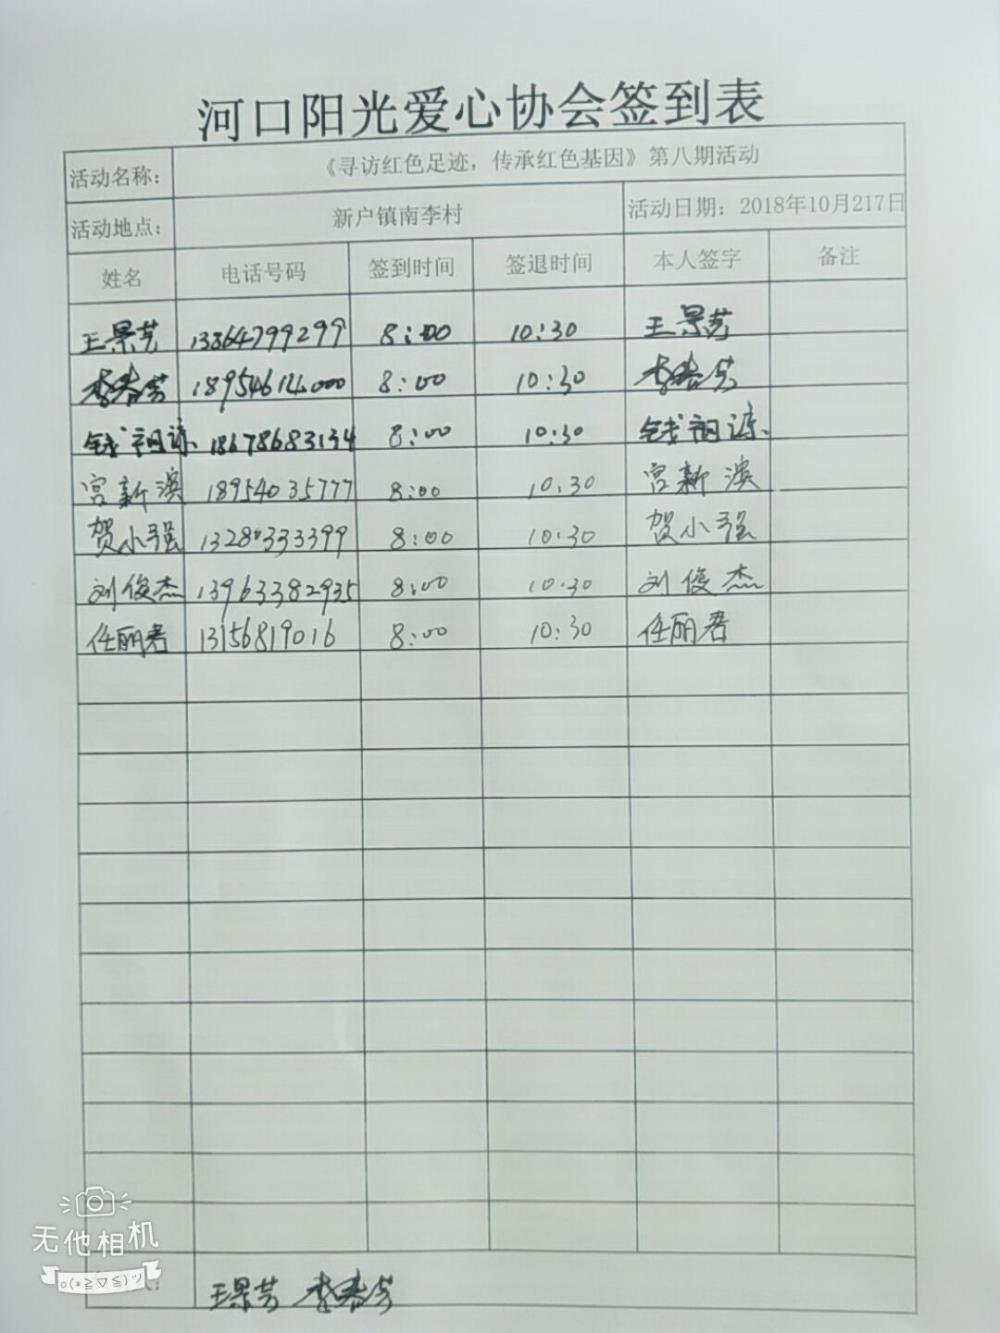 河口阳光爱心协会签到表
活动名称: 《寻访红色足迹，传承红色基因》第八期活动
活动地点: 新户镇南李村 活动日期: 2018年10月217日
姓名 电话号码 签到时间 签退时间 本人签字 备注
王景芳 13864799299 8:00 10:30 王景芳
李春芳 18954614000 8:00 10:30 李春芳
钱 18678683134 8:00 10:30 钱
宫新滨 18954035777 8:00 10:30 宫新滨
贺小强 13280333399 8:00 10:30 贺小强
刘俊杰 13963382935 8:00 10:30 刘俊杰
任丽君 13156819016 8:00 10:30 任丽君
王景芳 李春芳
无他相机
o(*≧▽≦)ツ